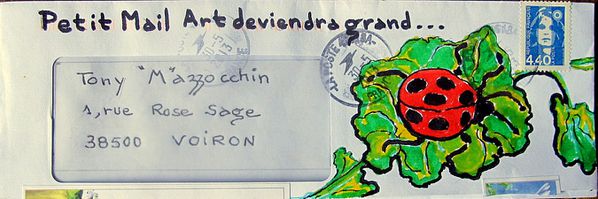 Petit Mail Art deviendra grand...
Tony "M"azzocchin
1, rue Rose Sage
38500 VOIRON
4,40